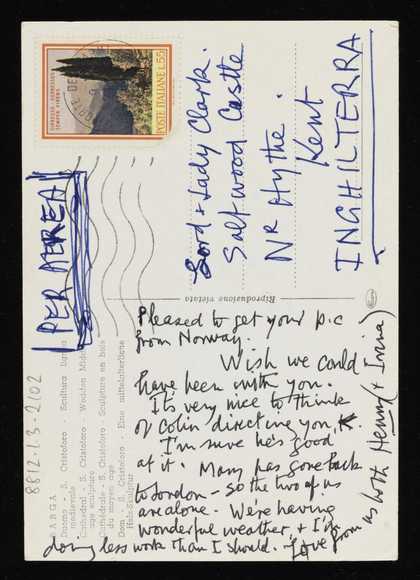 CIPRESSO - CUPRESSUS
SEMPER VIRENS
POSTE ITALIANE L.55
PER AEREA
Lord & Lady Clark.
Saltwood Castle
Nr Hythe.
Kent
INGHILTERRA
Riproduzione vietata
BARGA
Duomo - S. Cristoforo - Scultura lignea
medioevale
Cathedral - S. Cristoforo - Wooden Middle
age sculpture
Cathédral - S. Cristoforo - Sculpture en bois
du moyen age
Dom - S. Cristoforo - Eine mittelalterliche
Holz-Sculptur
8812.1.3.2102
Pleased to get your p.c
from Norway.
Wish we could
have been with you.
It's very nice to think
of Colin directing you,
I'm sure he's good
at it. Mary has gone back
to London - so the two of us
are alone. We're having
wonderful weather, & I'm
doing less work than I should. Love from us both Henry (& Irina)